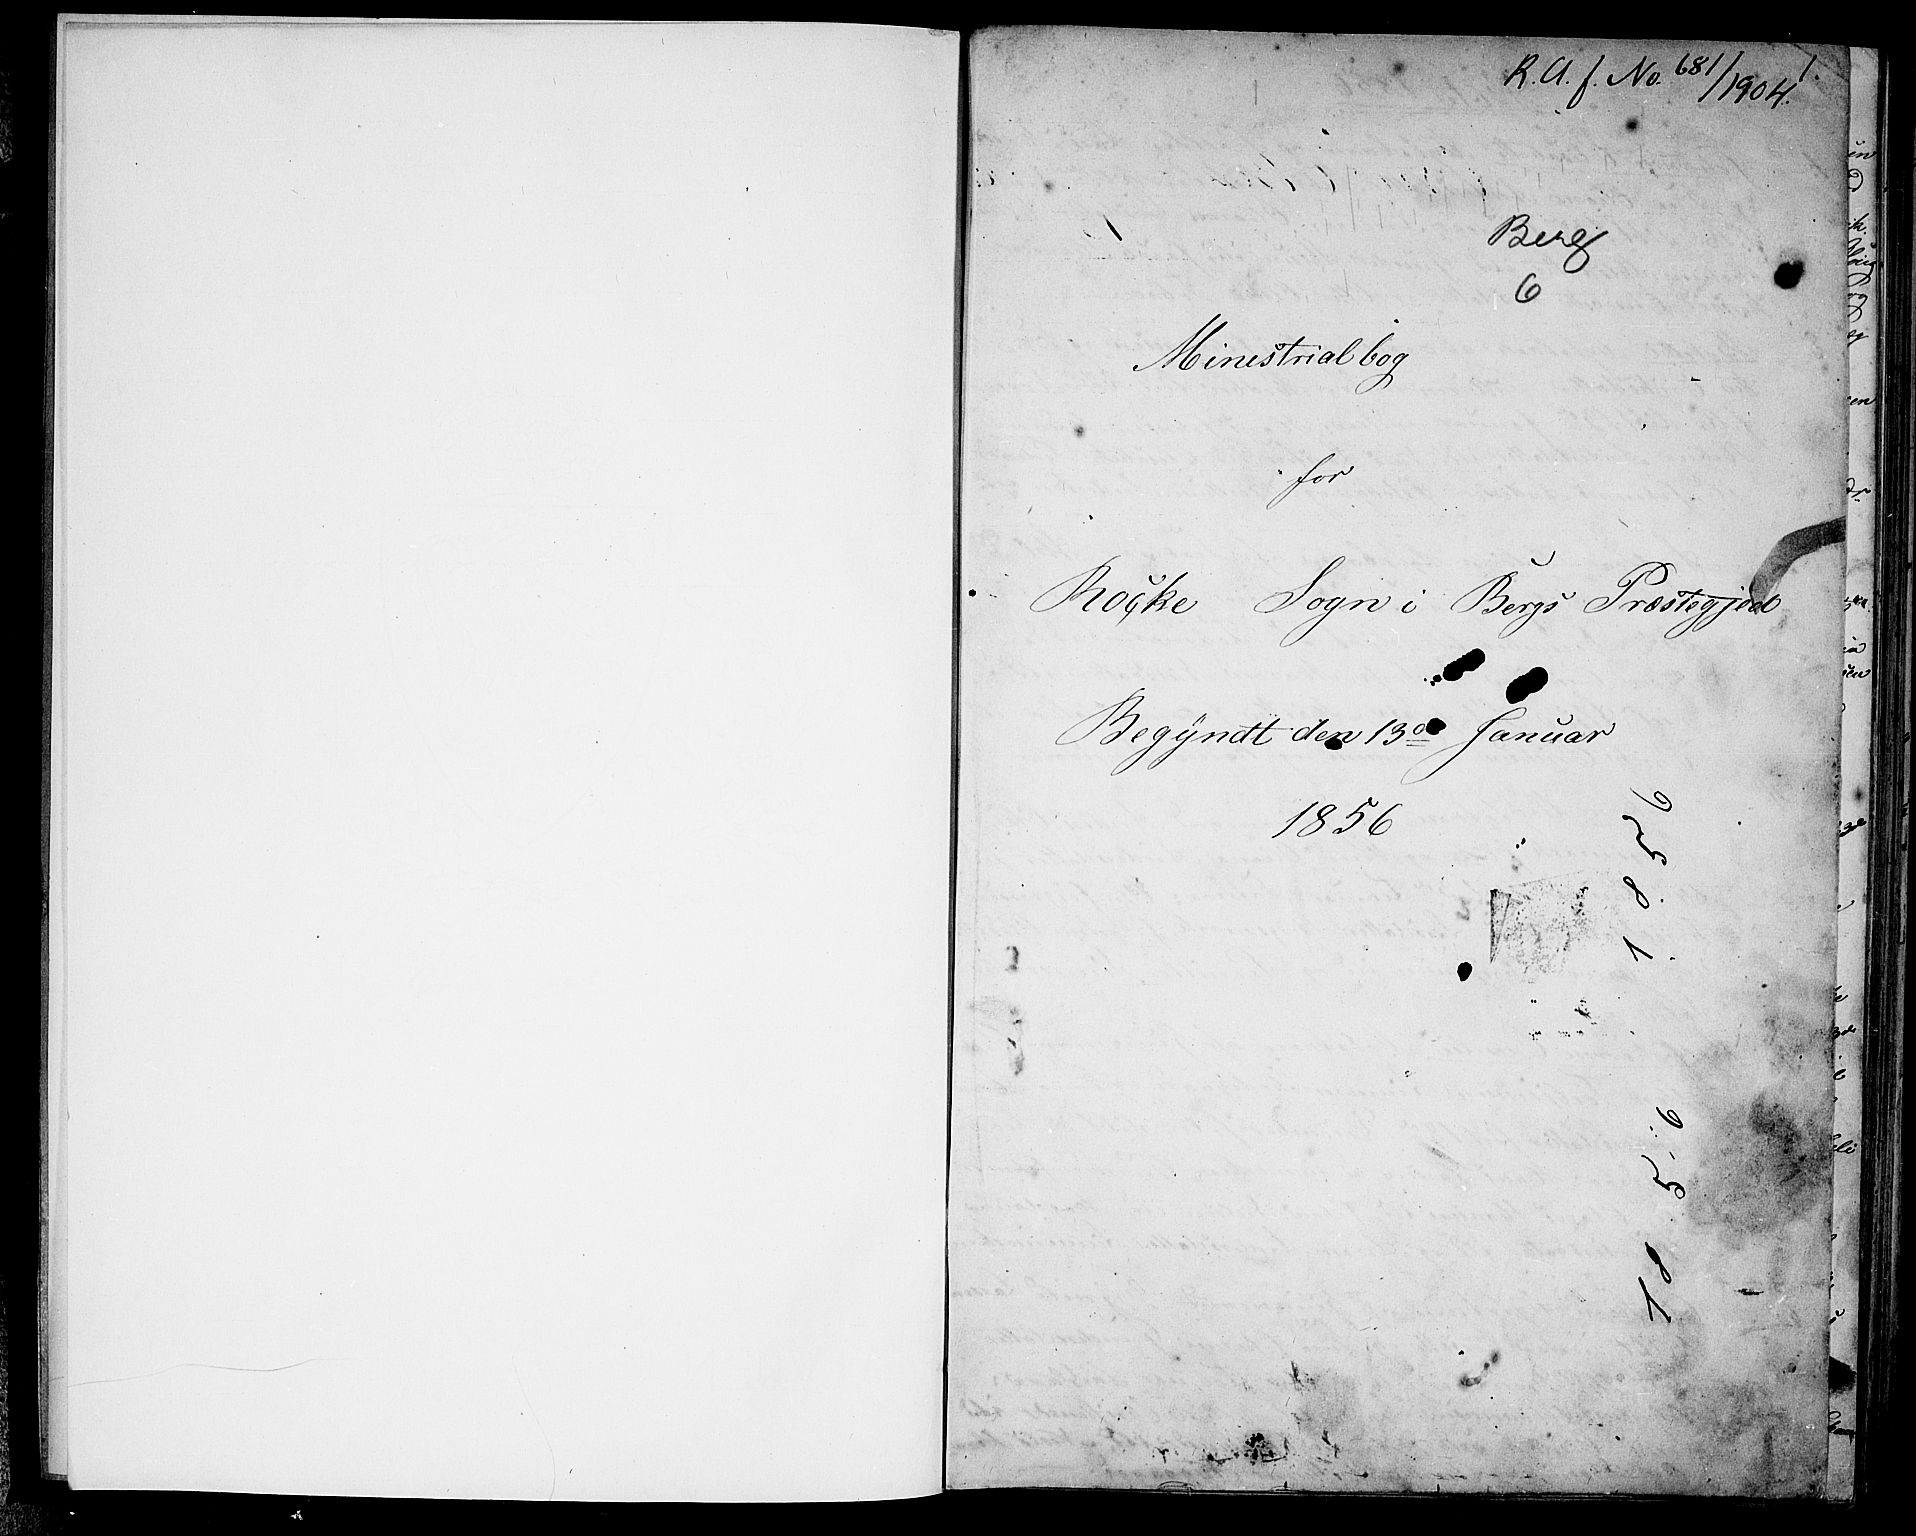 R. A. j. No. 681/1904. 1.
Berg
6
Minestrialbog
for
Rocke Sogn i Bergs Præstegjed
Begyndt den 13de Januar
1856
1 8 5 6
18 5 6